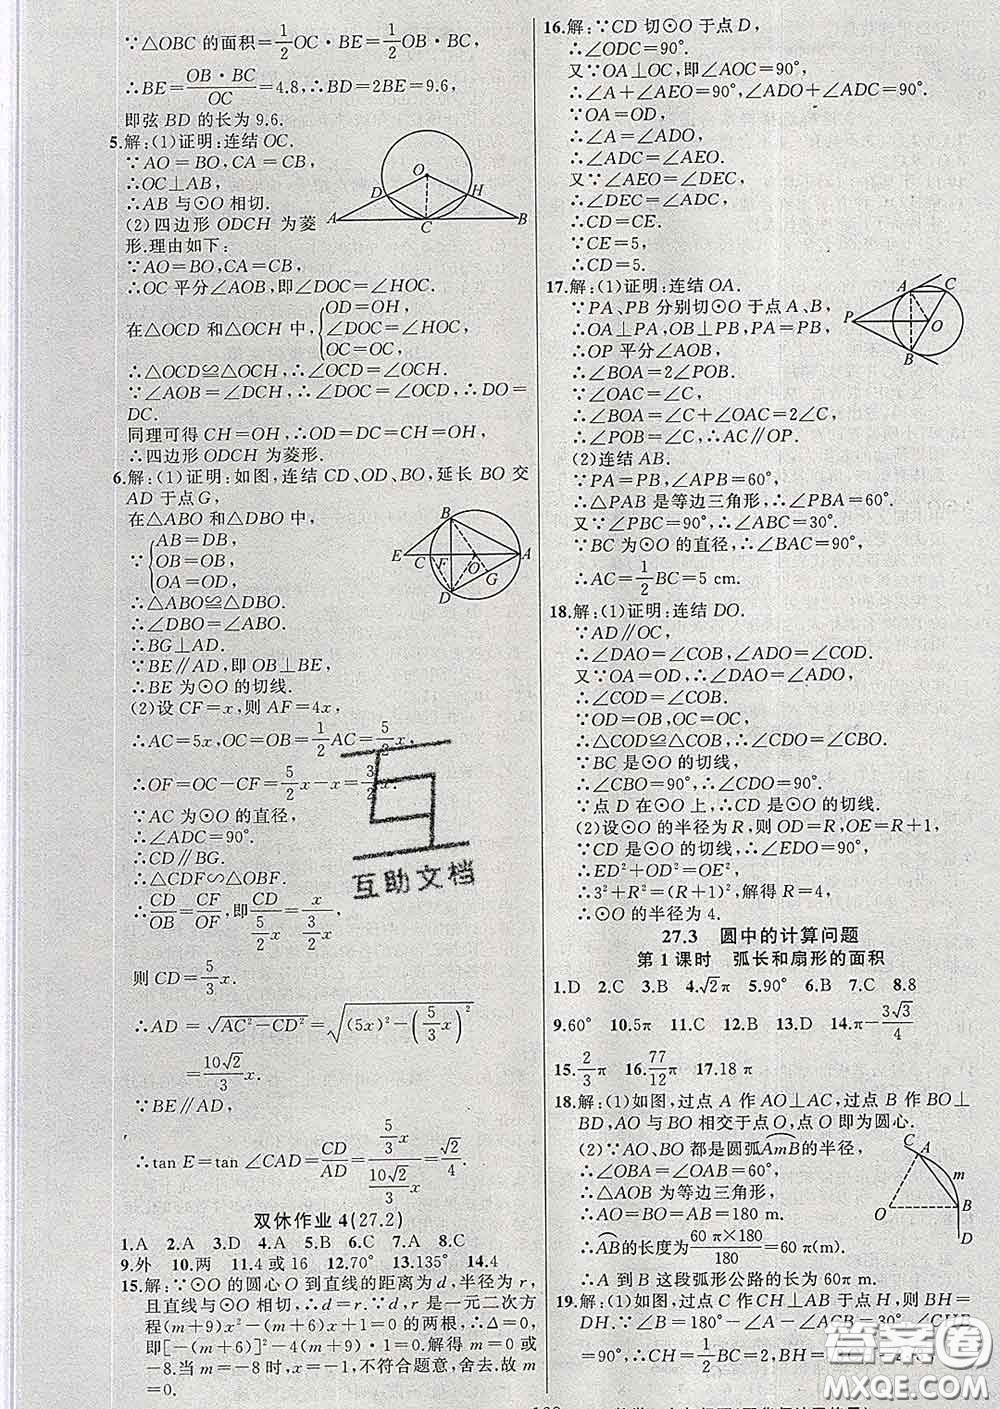 ∵△OBC 的面积=1/2 OC·BE=1/2 OB·BC,
∴BE=OB·BC/OC=4.8,∴BD=2BE=9.6,
即弦 BD 的长为 9.6.
5.解:(1)证明:连结 OC.
∵AO=BO,CA=CB,
∴OC⊥AB,
∴AB 与⊙O 相切.
(2)四边形 ODCH 为菱
形.理由如下:
∵AO=BO,CA=CB,
∴OC 平分∠AOB,即∠DOC=∠HOC.
在△OCD 和△OCH 中,{OD=OH,
∠DOC=∠HOC,
OC=OC,
∴△OCD≌△OCH,∴∠OCD=∠OCH.
∵∠AOB=∠DCH,∴∠DOC=∠OCD,∴DO=
DC.
同理可得 CH=OH,∴OD=DC=CH=OH,
∴四边形 ODCH 为菱形.
O
D
H
A
C
B
6.解:(1)证明:如图,连结 CD、OD、BO,延长 BO 交
AD 于点 G,
在△ABO 和△DBO 中,
∵{AB=DB,
OB=OB,
OA=OD,
∴△ABO≌△DBO.
∴∠DBO=∠ABO.
∴BG⊥AD.
∵BE∥AD,即 OB⊥BE,
∴BE 为⊙O 的切线.
B
E C F O A
G
D
(2)设 CF=x,则 AF=4x,
∴AC=5x,OC=OB=1/2 AC=5/2 x,
∴OF=OC-CF=5/2 x-x=3/2 x.
∵AC 为⊙O 的直径,
∴∠ADC=90°.
∴CD∥BG.
∴△CDF∽△OBF.
∴CD/OB=CF/OF,即 CD/(5/2 x)=x/(3/2 x),
则 CD=5/3 x.
∴AD=√(AC²-CD²)=√((5x)²-(5/3 x)²)
=10√2/3 x.
∵BE∥AD,
∴tan E=tan ∠CAD=CD/AD=(5/3 x)/(10√2/3 x)=√2/4.
双休作业 4(27.2)
1.A 2.A 3.D 4.A 5.B 6.C 7.A 8.C
9.外 10.两 11.4 或 16 12.70° 13.135° 14.4
15.解:∵⊙O 的圆心 O 到直线的距离为 d,半径为 r,
且直线与⊙O 相切,∴d=r.∵d,r 是一元二次方
程(m+9)x²-(m+6)x+1=0 的两根,∴Δ=0,
即[-(m+6)]²-4(m+9)·1=0.解得 m=0 或
-8.当 m=-8 时,x=-1,不符合题意,舍去.故 m
=0.
16.解:∵CD 切⊙O 于点 D,
∴∠ODC=90°.
又∵OA⊥OC,即∠AOC=90°,
∴∠A+∠AEO=90°,∠ADO+∠ADC=90°.
∵OA=OD,
∴∠A=∠ADO,
∴∠ADC=∠AEO.
又∵∠AEO=∠DEC,
∴∠DEC=∠ADC,
∴CD=CE.
∵CE=5,
∴CD=5.
17.解:(1)证明:连结 OA.
∵PA、PB 分别切⊙O 于点 A、B,
∴OA⊥PA,OB⊥PB,PA=PB,
∴OP 平分∠AOB.
∴∠BOA=2∠POB.
∵∠OAC=∠C,
∴∠BOA=∠C+∠OAC=2∠C.
∴∠POB=∠C,∴AC∥OP.
A C
P O
B
(2)连结 AB.
∵PA=PB,∠APB=60°,
∴△PAB 是等边三角形,∴∠PBA=60°.
又∵∠PBC=90°,∴∠ABC=30°.
∵BC 为⊙O 的直径,∴∠BAC=90°,
∴AC=1/2 BC=5 cm.
18.解:(1)证明:连结 DO.
∵AD∥OC,
∴∠DAO=∠COB,∠ADO=∠COD.
又∵OA=OD,∴∠DAO=∠ADO,
∴∠COD=∠COB.
∵OD=OB,OC=OC,
∴△COD≌△COB,∴∠CDO=∠CBO.
∵BC 是⊙O 的切线,
∴∠CBO=90°,∴∠CDO=90°.
∵点 D 在⊙O 上,∴CD 是⊙O 的切线.
(2)设⊙O 的半径为 R,则 OD=R,OE=R+1,
∵CD 是⊙O 的切线,∴∠EDO=90°.
∴ED²+OD²=OE²,
∴3²+R²=(R+1)²,解得 R=4,
∴⊙O 的半径为 4.
27.3 圆中的计算问题
第 1 课时 弧长和扇形的面积
1.D 2.C 3.B 4.√2π 5.90° 6.C 7.C 8.8
9.60° 10.5π 11.C 12.B 13.D 14.π-3√3/4
15.2/3 π 16.77/12 π 17.18 π
18.解:(1)如图,过点 A 作 AO⊥AC,过点 B 作 BO⊥
BD,AO 与 BO 相交于点 O,点 O 即为圆心.
(2)∵AO、BO 都是圆弧AmB的半径,
∴∠OBA=∠OAB=60°,
∴△AOB 为等边三角形,
∴AO=BO=AB=180 m.
∴AB的长度为60 π×180/180=60 π(m).
∴A 到 B 这段弧形公路的长为 60π m.
C A
m
O B
D
19.解:(1)如图,过点 C 作 CH⊥AB 于点 H,则 BH=
DH.∵∠B=180°-∠A-∠ACB=30°,∠CHB
=90°,∴CH=1/2 BC=2,BH=
互助文档
答案圈
MXQE.COM